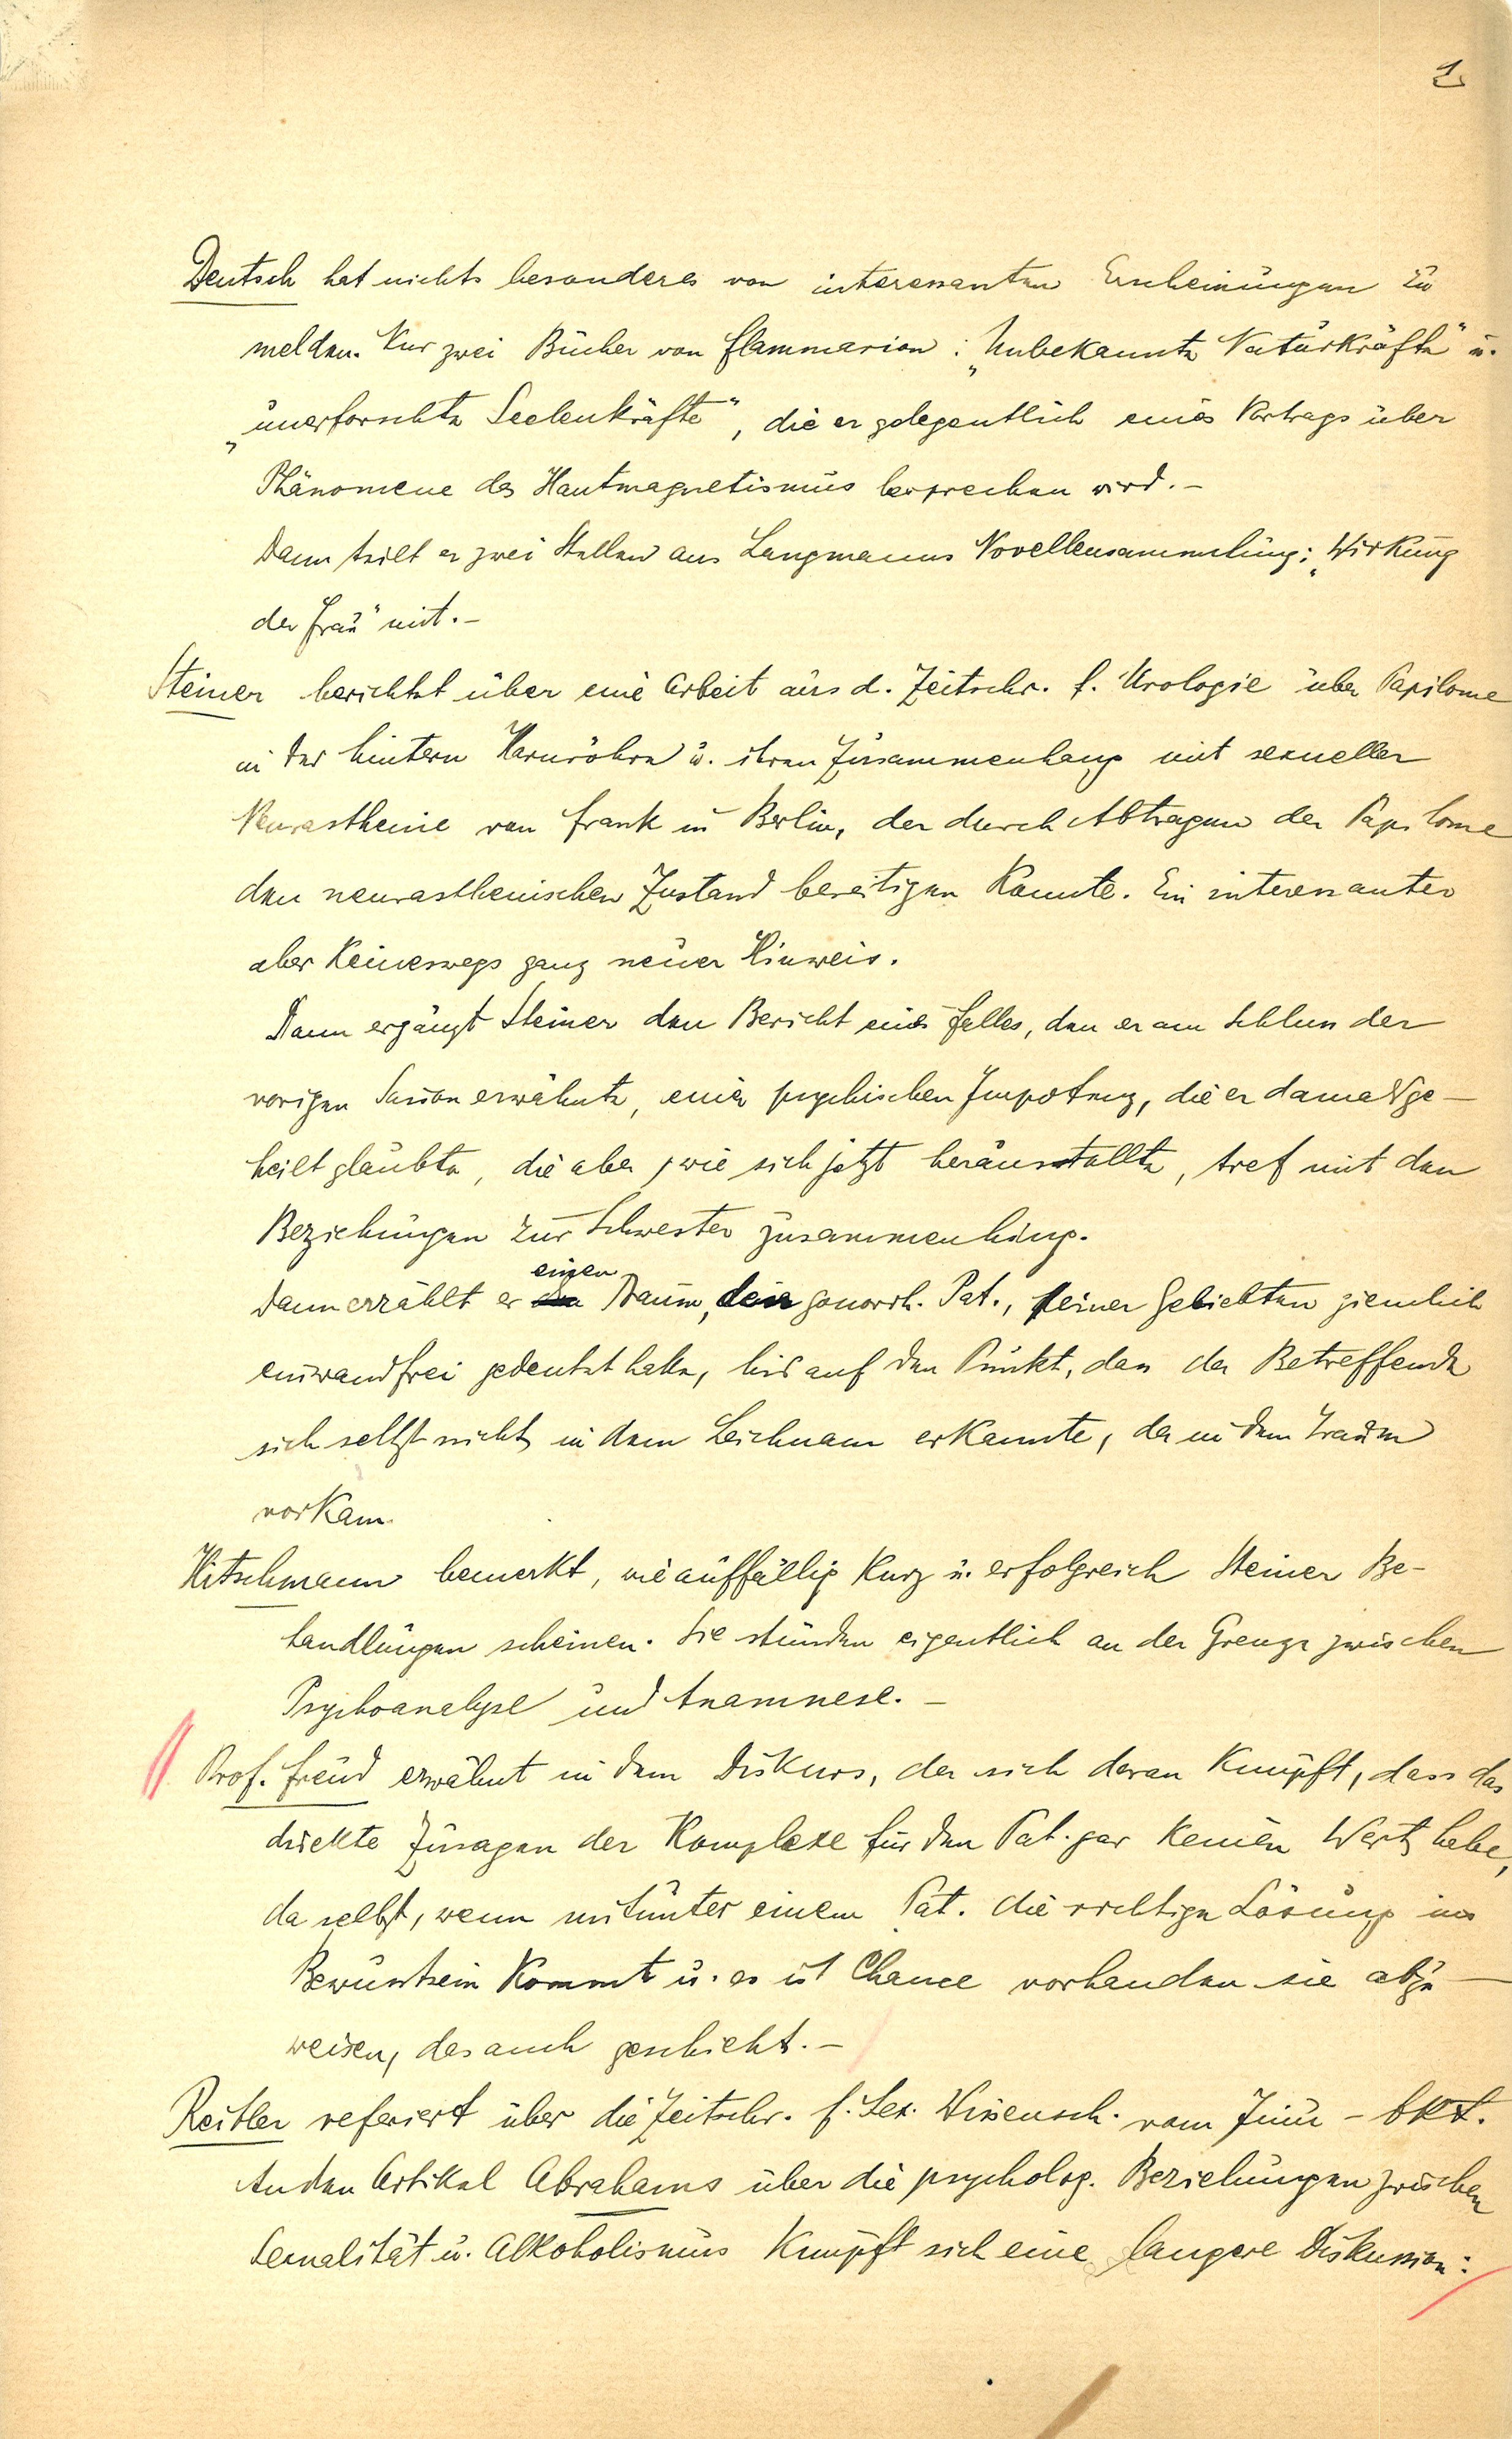 1
Deutsch hat nichts besonderes von interessanten Erscheinungen zu
melden. Nur zwei Bücher von Flammarion: „Unbekannte Naturkräfte" u.
„unerforschte Seelenkräfte", die er gelegentlich eines Vortrags über
Phänomene des Hautmagnetismus besprechen wird. –
Dann teilt er zwei Stellen aus Langmanns Novellensammlung: „Wirkung
der Frau" mit. –
Steiner berichtet über eine Arbeit aus d. Zeitschr. f. Urologie über Papilome
in der hintern Harnröhre u. ihren Zusammenhang mit sexueller
Neurasthenie von Frank in Berlin, der durch Abtragen der Papilome
den neurasthenischen Zustand beseitigen konnte. Ein interessanter
aber keineswegs ganz neuer Hinweis.
Dann ergänzt Steiner den Bericht eines Falles, den er am Schluss der
vorigen Saison erwähnte, einer psychischen Impotenz, die er damals ge-
heilt glaubte, die aber, wie sich jetzt herausstellte, tief mit den
Beziehungen zur Schwester zusammenhing.
Dann erzählt er einen Traum, den gonorrh. Pat., seiner Geliebten ziemlich
einwandfrei gedeutet hatte, bis auf den Punkt, dass der Betreffende
sich selbst nicht in dem Leichnam erkannte, der in dem Traum
vorkam.
Hitschmann bemerkt, wie auffällig kurz u. erfolgreich Steiner Be-
handlungen scheinen. Sie stünden eigentlich an der Grenze zwischen
Psychoanalyse und Anamnese. –
Prof. Freud erwähnt in dem Diskurs, der sich daran knüpft, dass das
direkte Zusagen der Komplexe für den Pat. gar keinen Wert habe,
da selbst, wenn mitunter einem Pat. die richtige Lösung ins
Bewusstsein kommt u. es ist Chance vorhanden sie abzu-
weisen, das auch geschieht. –
Reitler referiert über die Zeitschr. f. Sex. Wissensch. vom Juni – Okt.
An den Artikel Abrahams über die psycholog. Beziehungen zwischen
Sexualität u. Alkoholismus knüpft sich eine langere Diskussion: